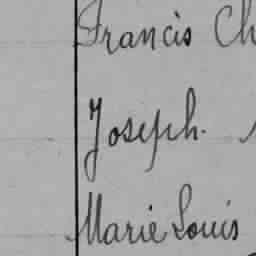 Francis Ch
Joseph.
Marie Louis